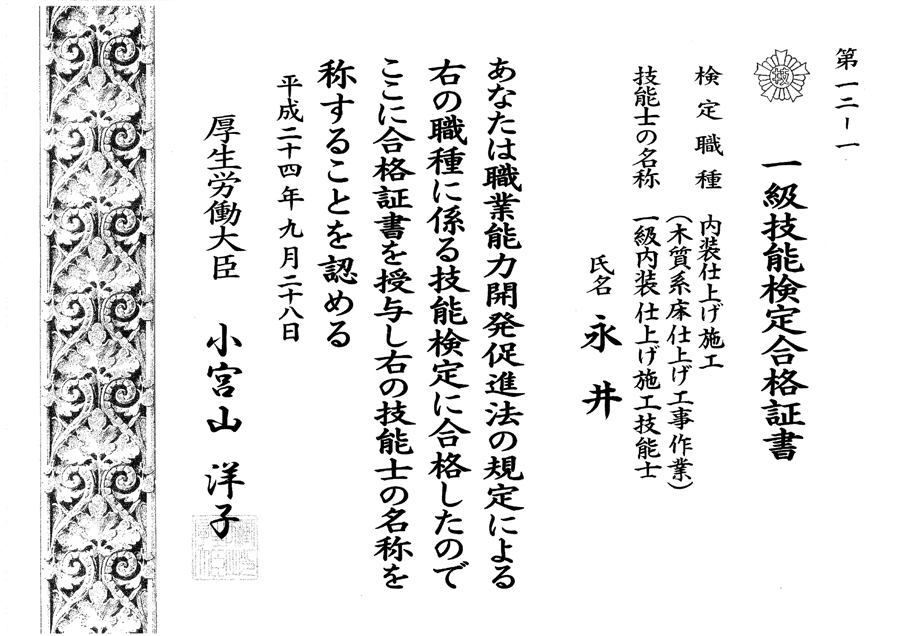 第一二ー一
一級技能検定合格証書
検定職種 内装仕上げ施工
(木質系床仕上げ工事作業)
技能士の名称 一級内装仕上げ施工技能士
氏名 永井
あなたは職業能力開発促進法の規定による
右の職種に係る技能検定に合格したので
ここに合格証書を授与し右の技能士の名称を
称することを認める
平成二十四年九月二十八日
厚生労働大臣 小宮山 洋子